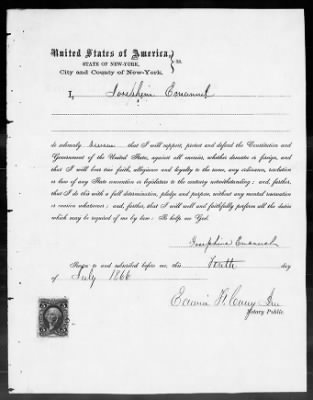 United States of America,
STATE OF NEW-YORK, } ss.
City and County of New-York.
I, Josephine Emanuel
do solemnly swear that I will support, protect and defend the Constitution and
Government of the United States, against all enemies, whether domestic or foreign, and
that I will bear true faith, allegiance and loyalty to the same, any ordinance, resolution
or law of any State convention or legislature to the contrary notwithstanding; and, further,
that I do this with a full determination, pledge and purpose, without any mental reservation
or evasion whatsoever; and, further, that I will well and faithfully perform all the duties
which may be required of me by law: So help me God.
Josephine Emanuel
Sworn to and subscribed before me, this Tenth day
of July 1866
Edwin F. Corey Jun
Notary Public.